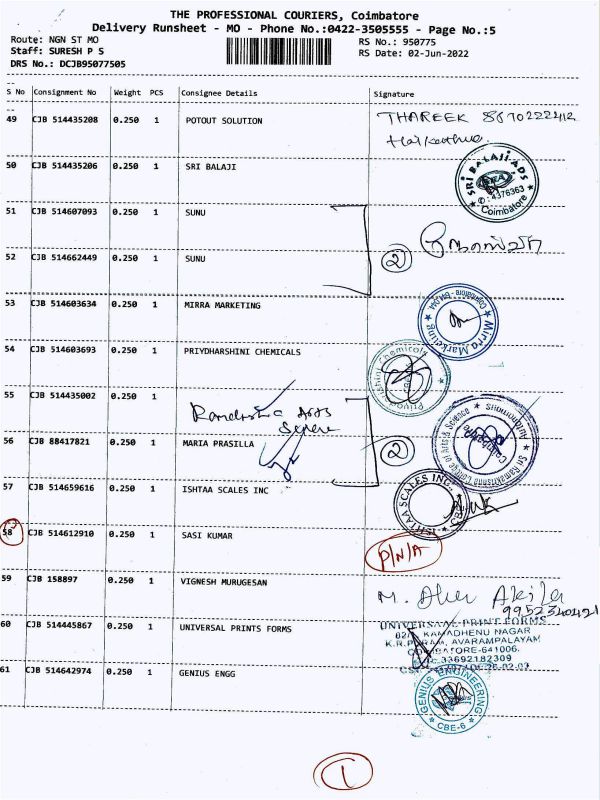 THE PROFESSIONAL COURIERS, Coimbatore
Delivery Runsheet - MO - Phone No.:0422-3505555 - Page No.:5
Route: NGN ST MO
RS No.: 950775
Staff: SURESH P S
RS Date: 02-Jun-2022
DRS No.: DCJB95077505
S No Consignment No Weight PCS Consignee Details Signature
49 CJB 514435208 0.250 1 POTOUT SOLUTION THAREEK
50 CJB 514435206 0.250 1 SRI BALAJI
SRI BALAJI ADS
✆: 4376363
Coimbatore
51 CJB 514607093 0.250 1 SUNU
2
52 CJB 514662449 0.250 1 SUNU
53 CJB 514603634 0.250 1 MIRRA MARKETING
Mirra Marketing
54 CJB 514603693 0.250 1 PRIYDHARSHINI CHEMICALS
Chemicals
55 CJB 514435002 0.250 1
Arts
Sri Ramakrishna College of Arts & Science
Autonomous
Coimbatore
56 CJB 88417821 0.250 1 MARIA PRASILLA
2
57 CJB 514659616 0.250 1 ISHTAA SCALES INC
ISHTAA SCALES INC
CBE
58 CJB 514612910 0.250 1 SASI KUMAR
P/N/A
59 CJB 158897 0.250 1 VIGNESH MURUGESAN
M. Akila
60 CJB 514445867 0.250 1 UNIVERSAL PRINTS FORMS
UNIVERSAL PRINT FORMS
KAMADHENU NAGAR
AVARAMPALAYAM
COIMBATORE-641006.
61 CJB 514642974 0.250 1 GENIUS ENGG
GENIUS ENGINEERING
CBE-6
1